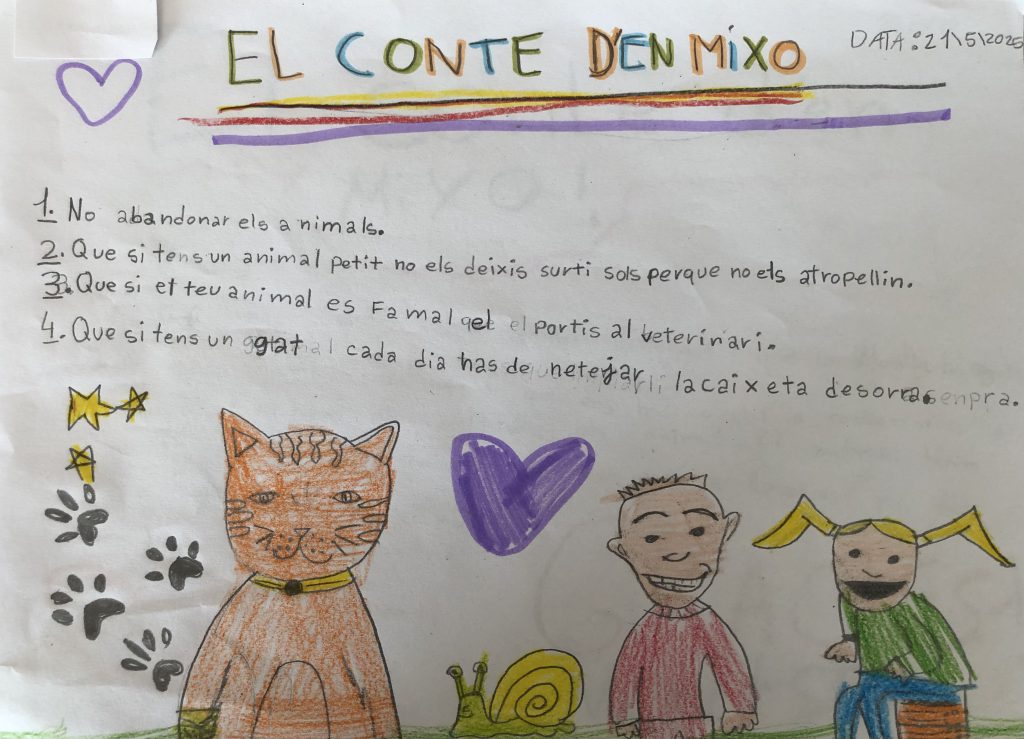 EL CONTE D'EN MiXO
DATA: 21\5\2025
1. No abandonar els animals.
2. Que si tens un animal petit no els deixis surti sols perque no els atropellin.
3. Que si el teu animal es Famal qel el portis al veterinari.
4. Que si tens un gat cada dia has de netejar la caixeta de sorra senpra.